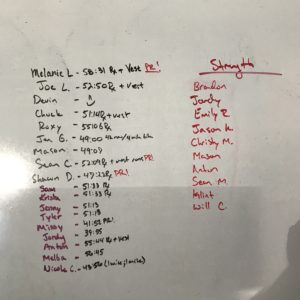 Melanie L - 58:31 Rx + Vest PR!
Joe L. - 52:50 Rx + vest
Devin -
Chuck - 51:14 Rx + vest
Roxy - 55:06 Rx
Jen G. - 49:00
Mason - 49:09
Sean C. - 52:09 Rx + vest PR!
Shawn D. - 47:23 Rx PR!
Sam - 51:33 Rx
Krista - 51:33 Rx
Jonny - 51:13
Tyler - 51:13
Missy - 41:52 PR!
Jordy - 39:55
Anton - 55:44 Rx + Vest
Melba - 56:45
Nicole C. - 43:56
Strength
Brandon
Jordy
Emily R.
Jason K.
Christy M.
Mason
Anton
Sean M.
Klint
Will C.